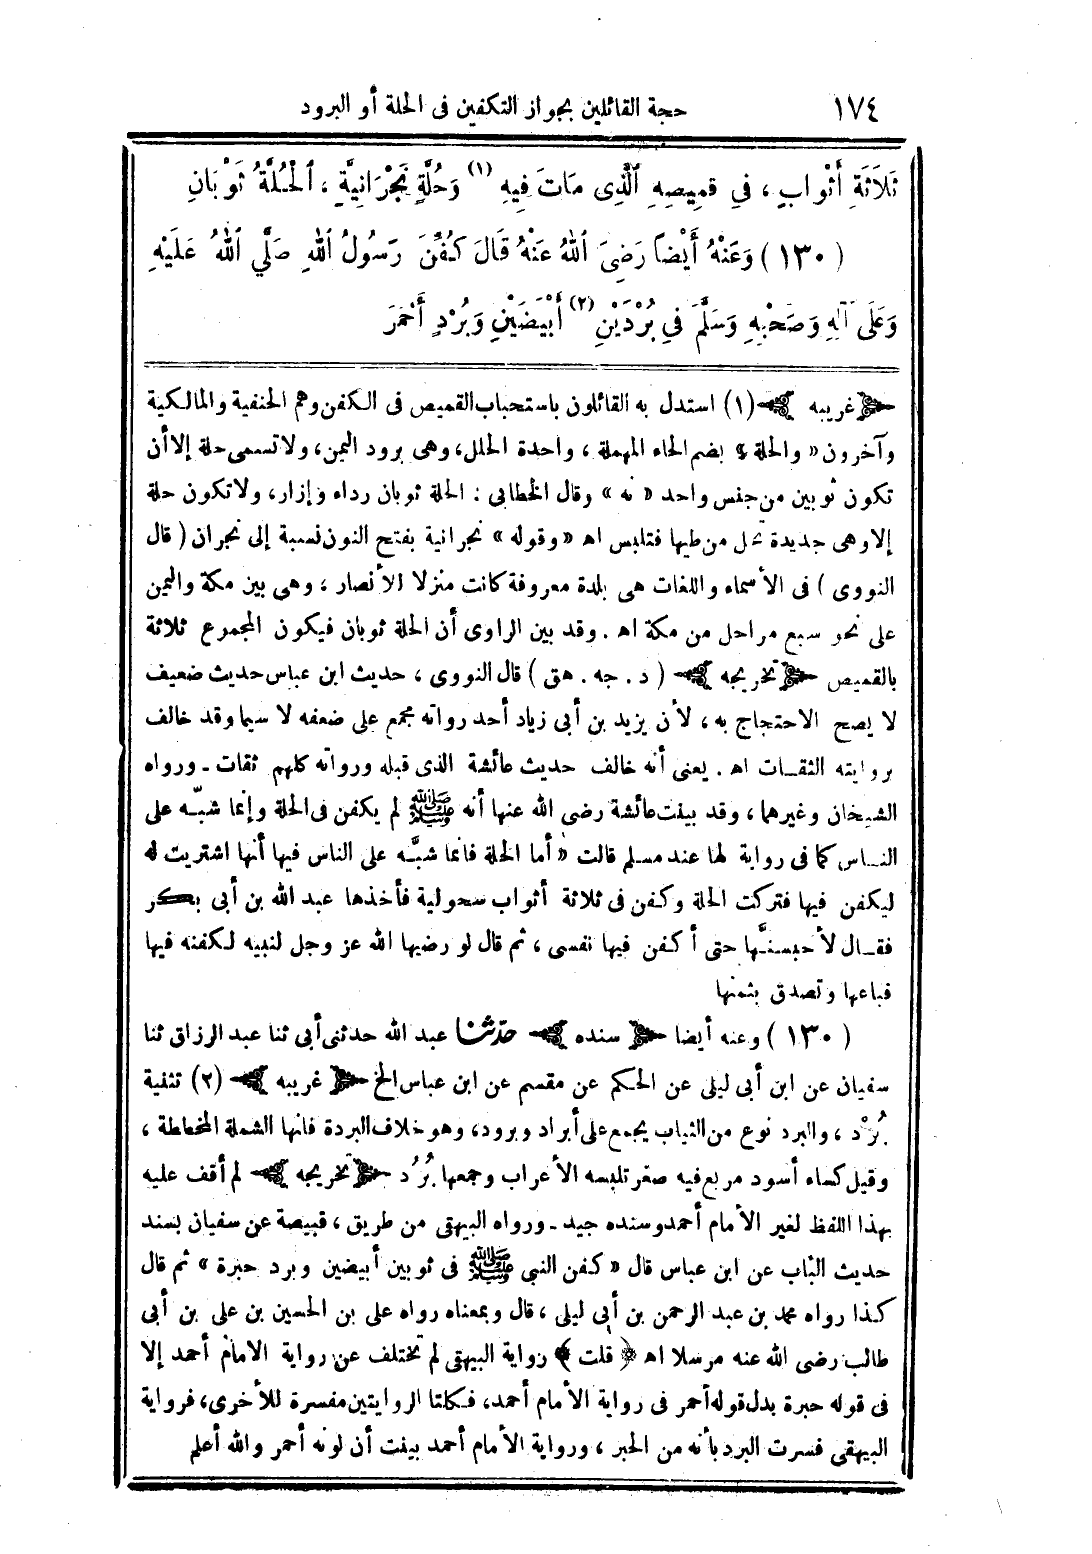 ١٧٤ حجة القائلين بجواز التكفين فى الحلة أو البرود
ثَلَاثَةِ أَثْوابٍ، فِي قَمِيصِهِ الَّذِى مَاتَ فِيهِ (١) وَحُلَّةٍ نَجْرَانِيَّةٍ، الْحُلَّةُ ثَوْبَانِ
(١٣٠) وَعَنْهُ أَيْضًا رَضِىَ اللهُ عَنْهُ قَالَ كُفِّنَ رَسُولُ اللهِ صَلَّي اللهُ عَلَيْهِ
وَعَلَى آلِهِ وَصَحْبِهِ وَسَلَّمَ فِي بُرْدَيْنِ (٢) أَبْيَضَيْنِ وَبُرْدٍ أَحْمَرَ
غريبه (١) استدل به القائلون باستحباب القميص فى الكفن وهم الحنفية والمالكية
وآخرون «والحلة» بضم الحاء المهملة، واحدة الحلل، وهى برود اليمن، ولا تسمى حلة إلا أن
تكون ثوبين من جنس واحد «نه» وقال الخطابى: الحلة ثوبان رداء وإزار، ولا تكون حلة
إلا وهى جديدة تحل من طيها فتلبس اه «وقوله» نجرانية بفتح النون نسبة إلى نجران (قال
النووى) فى الأسماء واللغات هى بلدة معروفة كانت منزلا للأنصار، وهى بين مكة واليمن
على نحو سبع مراحل من مكة اه. وقد بين الراوى أن الحلة ثوبان فيكون المجموع ثلاثة
بالقميص تخريجه (د. جه. هق) قال النووى، حديث ابن عباس حديث ضعيف
لا يصح الاحتجاج به، لأن يزيد بن أبى زياد أحد رواته مجمع على ضعفه لا سيما وقد خالف
بروايته الثقات اه. يعنى أنه خالف حديث عائشة الذى قبله ورواته كلهم ثقات ـ ورواه
الشيخان وغيرهما، وقد بينت عائشة رضى الله عنها أنه ﷺ لم يكفن فى الحلة وإنما شبّه على
الناس كما فى رواية لها عند مسلم قالت «أما الحلة فانما شبَّه على الناس فيها أنها اشتريت له
ليكفن فيها فتركت الحلة وكفن فى ثلاثة أثواب سحولية فأخذها عبد الله بن أبى بكر
فقال لأحبسنَّها حتى أكفن فيها نفسى، ثم قال لو رضيها الله عز وجل لنبيه لكفنه فيها
فباعها وتصدق بثمنها
(١٣٠) وعنه أيضا سنده حدّثنا عبد الله حدثنى أبى ثنا عبد الرزاق ثنا
سفيان عن ابن أبى ليلى عن الحكم عن مقسم عن ابن عباس الخ غريبه (٢) تثنية
بُرْد، والبرد نوع من الثياب يجمع على أبراد وبرود، وهو خلاف البردة فانها الشملة المخططة،
وقيل كساء أسود مربع فيه صغر تلبسه الأعراب وجمعها بُرُد تخريجه لم أقف عليه
بهذا اللفظ لغير الأمام أحمد وسنده جيد ـ ورواه البيهقى من طريق، قبيصة عن سفيان بسند
حديث الباب عن ابن عباس قال «كفن النبي ﷺ فى ثوبين أبيضين وبرد حبرة» ثم قال
كذا رواه محمد بن عبد الرحمن بن أبى ليلى، قال وبمعناه رواه على بن الحسين بن على بن أبى
طالب رضى الله عنه مرسلا اه ﴿قلت﴾ رواية البيهقى لم تختلف عن رواية الامام أحمد إلا
فى قوله حبرة بدل قوله أحمر فى رواية الأمام أحمد، فكلتا الروايتين مفسرة للأخرى، فرواية
البيهقى فسرت البرد بأنه من الحبر، ورواية الأمام أحمد بينت أن لونه أحمر والله أعلم